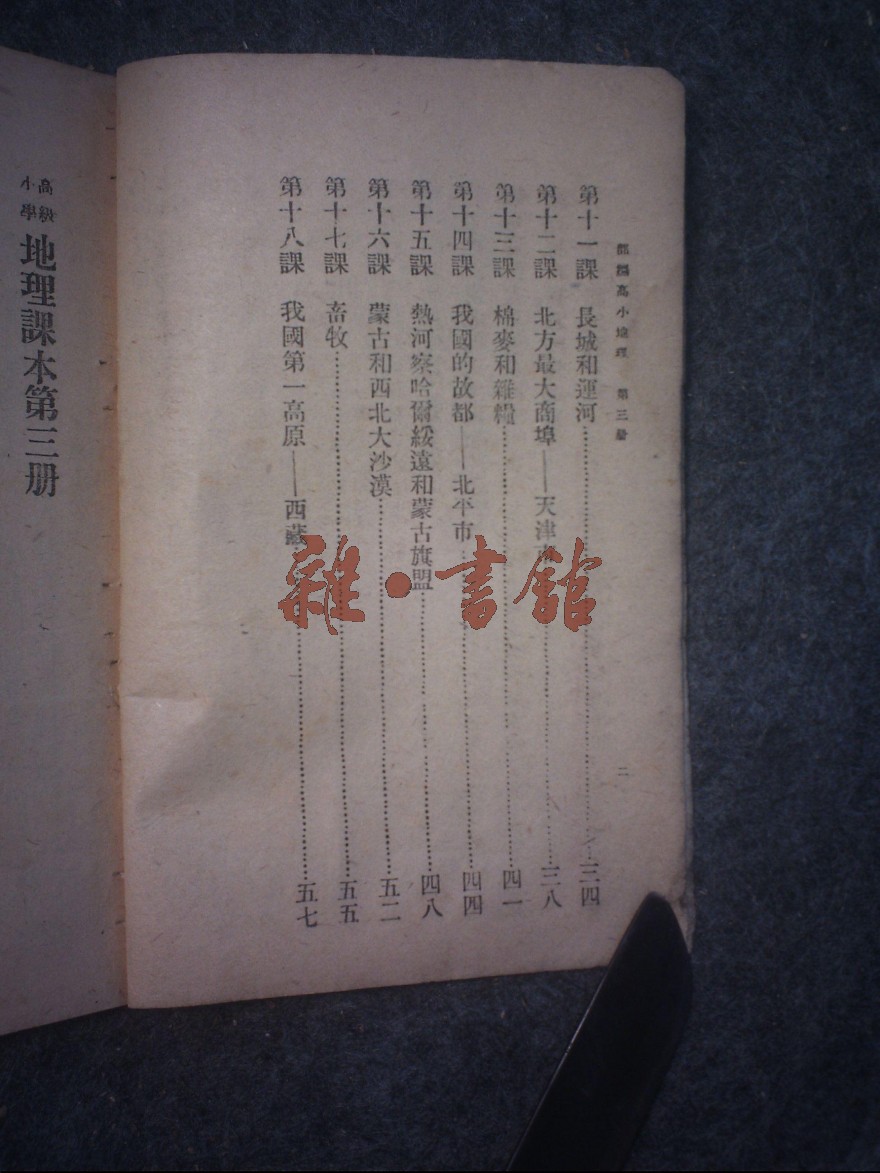 部編高小地理　第三册　二
第十一課　長城和運河……三四
第十二課　北方最大商埠——天津市……三八
第十三課　棉麥和雜糧……四一
第十四課　我國的故都——北平市……四四
第十五課　熱河察哈爾綏遠和蒙古旗盟……四八
第十六課　蒙古和西北大沙漠……五二
第十七課　畜牧……五五
第十八課　我國第一高原——西藏……五七
高級小學　地理課本第三册
雜·書館